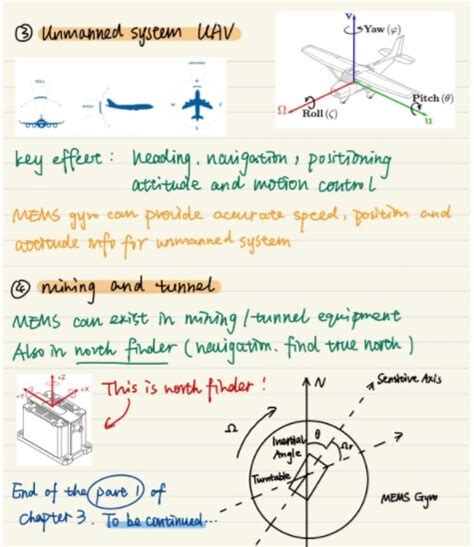 ③ Unmanned system UAV
ROLL
PITCH
V
Yaw (φ)
Pitch (θ)
u
Ω
Roll (ζ)
key effect : heading. navigation, positioning
attitude and motion control
MEMS gyro can provide accurate speed, position and
attitude info for unmanned system
④ mining and tunnel
MEMS can exist in mining / tunnel equipment
Also in north finder ( navigation. find true north )
+Z
+X
+Y
This is north finder !
N
Sensitive Axis
Ω
θ
Inertial
Angle
Ωr
Turntable
MEMS Gyro
End of the part 1 of
chapter 3. To be continued...